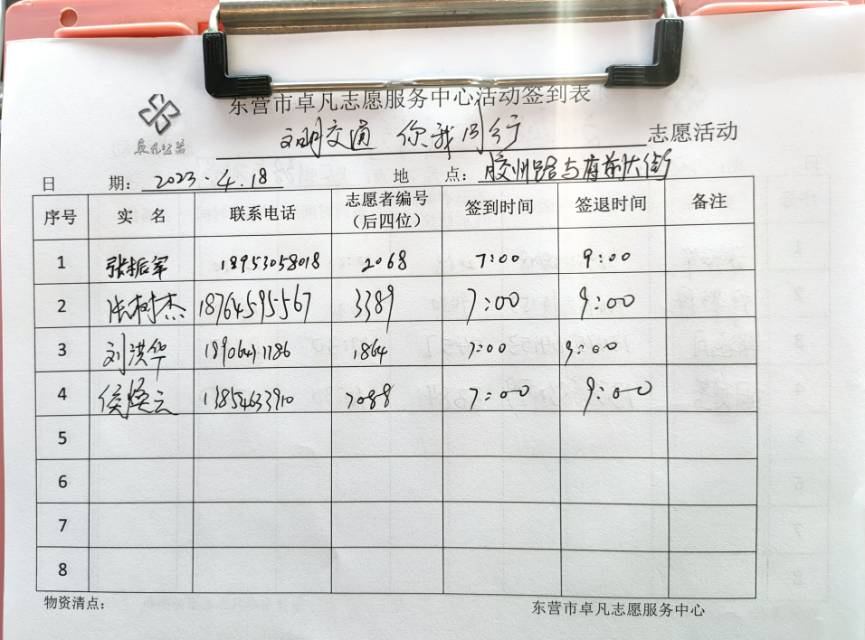 东营市卓凡志愿服务中心活动签到表
卓凡公益
文明交通 你我同行 志愿活动
日 期：2023.4.18 地 点：胶州路与府前大街
序号 实 名 联系电话 志愿者编号（后四位） 签到时间 签退时间 备注
1 张振军 18953058018 2068 7:00 9:00
2 张树杰 18764595567 3389 7:00 9:00
3 刘洪华 1864 7:00 9:00
4 13854633910 7088 7:00 9:00
5
6
7
8
物资清点： 东营市卓凡志愿服务中心